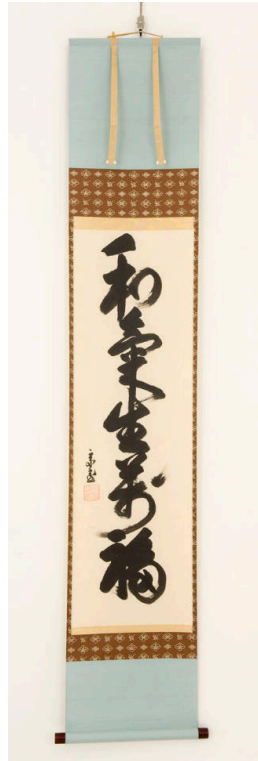 和氣生萬福